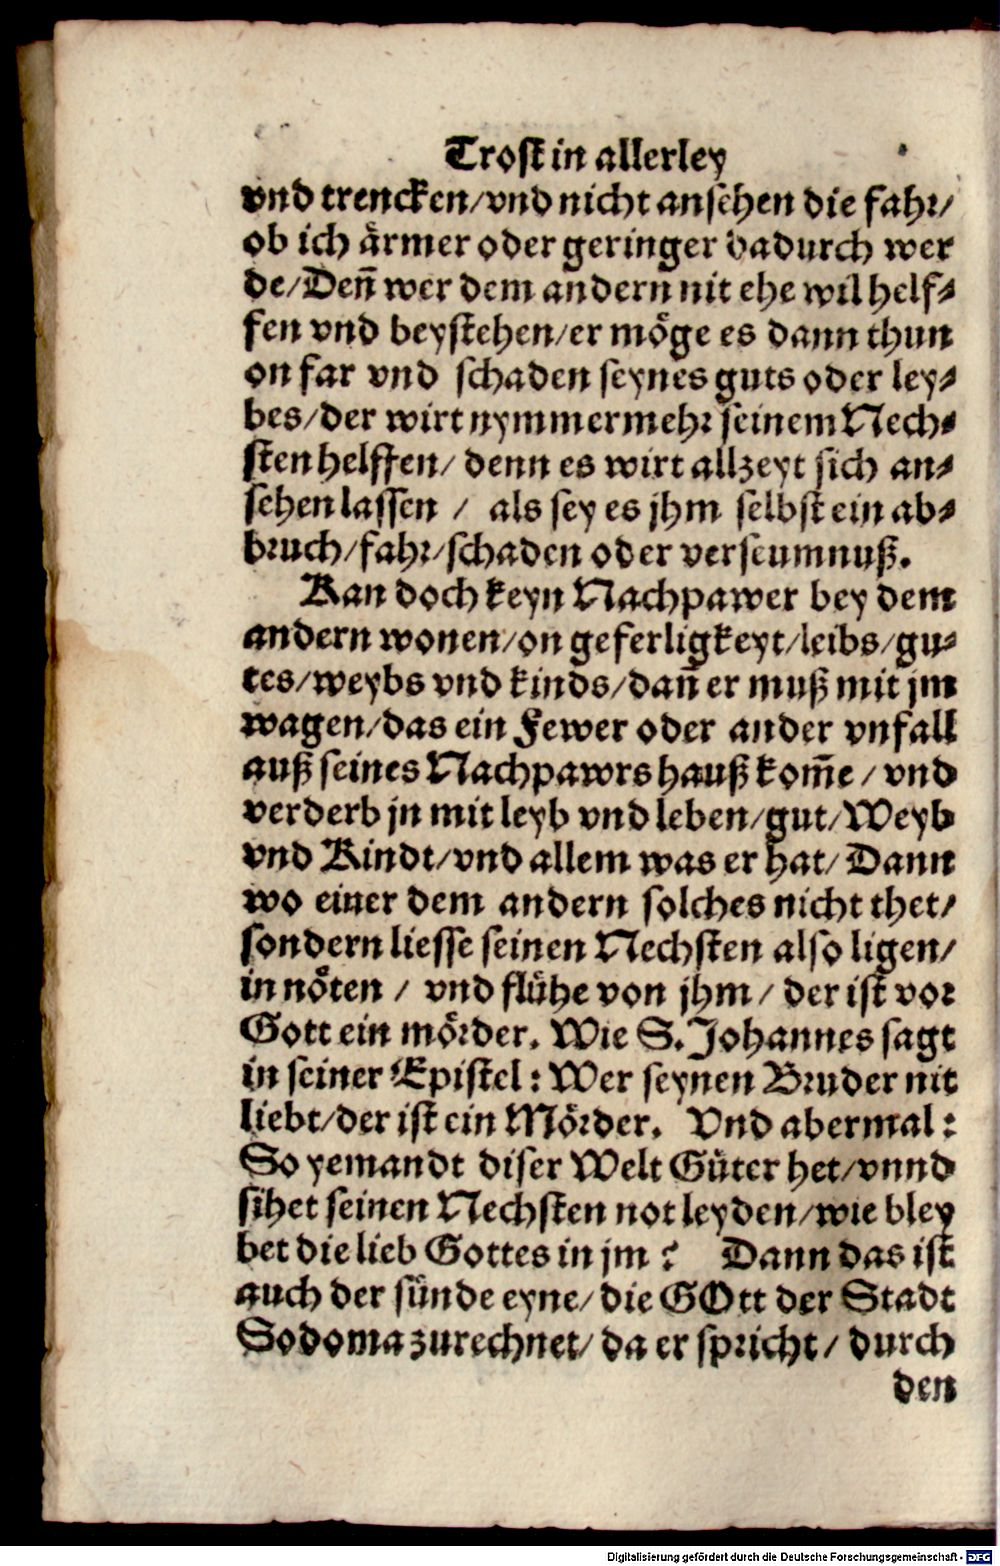 Trost in allerley
vnd trencken/vnd nicht ansehen die fahr/
ob ich aͤrmer oder geringer dadurch wer
de/Deñ wer dem andern nit ehe wil helf⸗
fen vnd beystehen/er moͤge es dann thun
on far vnd schaden seynes guts oder ley⸗
bes/der wirt nymmermehr seinem Nech⸗
sten helffen/ denn es wirt allzeyt sich an⸗
sehen lassen / als sey es jhm selbst ein ab⸗
bruch/fahr/schaden oder verseumnuß.
Kan doch keyn Nachpawer bey dem
andern wonen/on geferligkeyt/leibs/gu⸗
tes/weybs vnd kinds/dañ er muß mit jm
wagen/das ein Fewer oder ander vnfall
auß seines Nachpawrs hauß kom̃e / vnd
verderb jn mit leyb vnd leben/gut/Weyb
vnd Kindt/vnd allem was er hat/ Dann
wo einer dem andern solches nicht thet/
sondern liesse seinen Nechsten also ligen/
in noͤten / vnd fluͤhe von jhm/ der ist vor
Gott ein moͤrder. Wie S. Johannes sagt
in seiner Epistel: Wer seynen Bruder nit
liebt/der ist ein Moͤrder. Vnd abermal:
So yemandt diser Welt Guͤter het/vnnd
sihet seinen Nechsten not leyden/wie bley
bet die lieb Gottes in jm? Dann das ist
auch der suͤnde eyne/die GOtt der Stadt
Sodoma zurechnet/ da er spricht/ durch
den
Digitalisierung gefördert durch die Deutsche Forschungsgemeinschaft - DFG